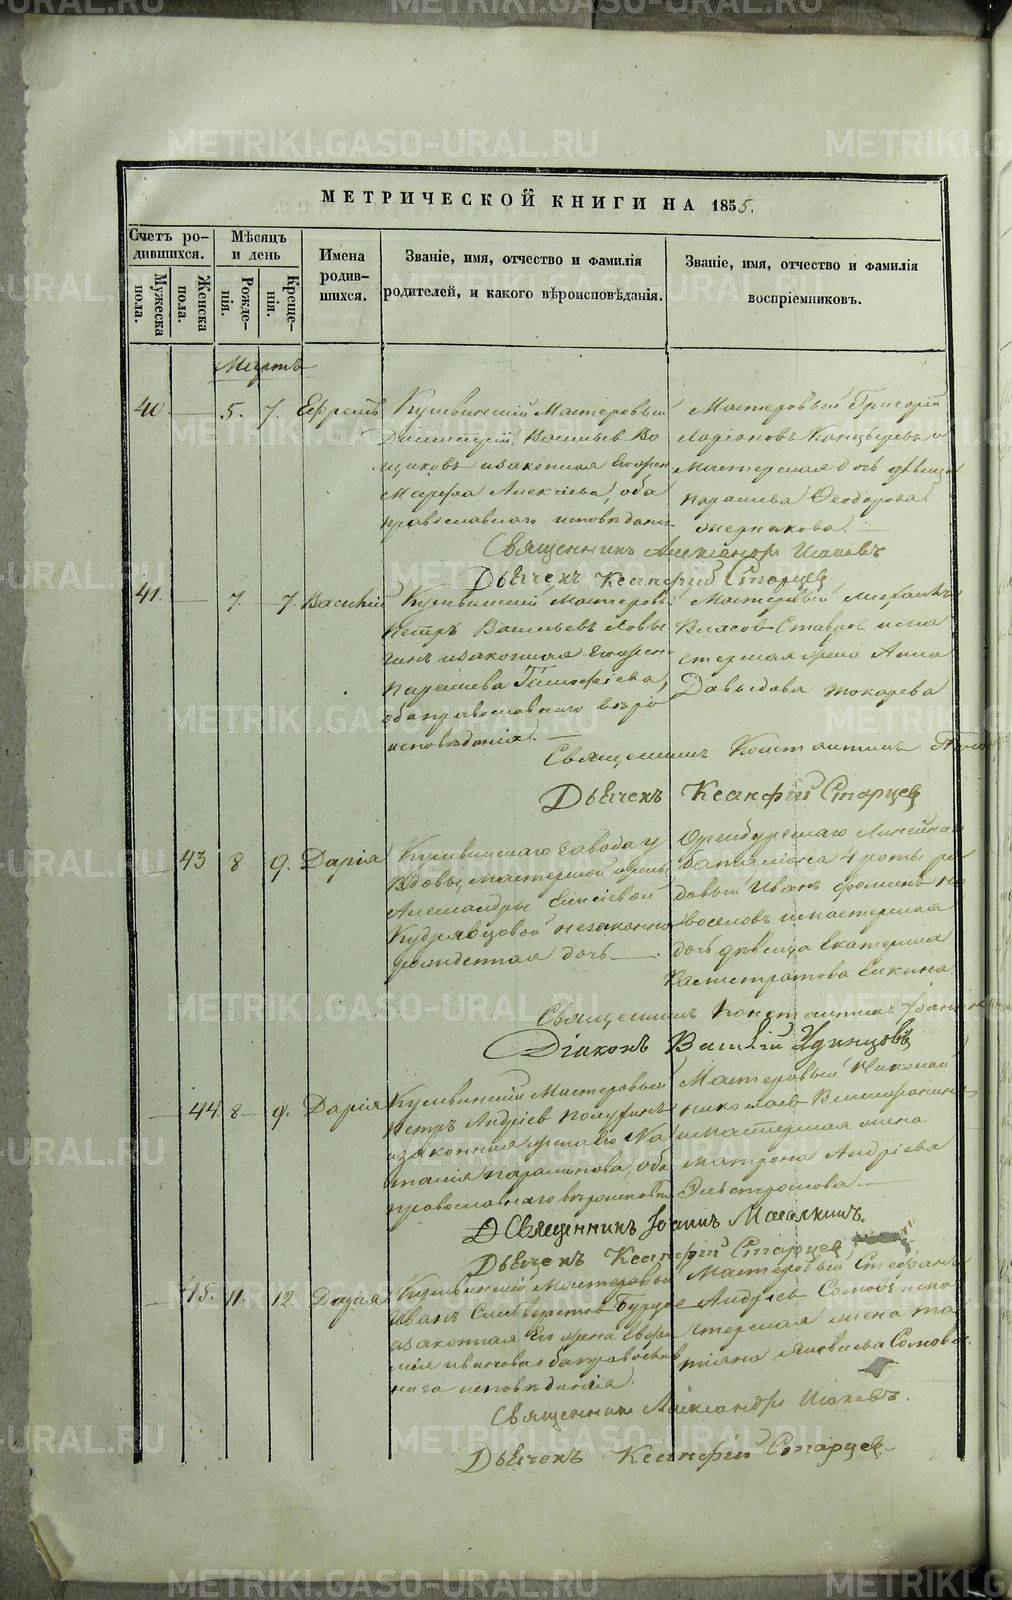 МЕТРИЧЕСКОЙ КНИГИ НА 1855.
Счетъ ро-
дившихся.
Мужеска
пола.
Женска
пола.
Мѣсяцъ
и день
Рожде-
нія.
Креще-
нія.
Имена
родив-
шихся.
Званіе, имя, отчество и фамилія
родителей, и какого вѣроисповѣданія.
Званіе, имя, отчество и фамилія
воспріемниковъ.
Мартъ
40 5. 7. Ефремъ
Кушвинскій Мастеровый
Васильевъ
изаконная Его жена
Марфа Алексѣева, оба
православнаго исповѣданія
Мастеровый Григорій
Ларіоновъ и
мастерская дочь дѣвица
Параскева Ѳеодорова
Священникъ Александръ
Дьячекъ Ксанфій Старцев
41. 7. 7. Василій
Кушвинскій Мастеровый
Петръ Васильевъ
изаконная Его жена
Параскева Тимофѣева,
оба православнаго вѣро
исповѣданія.
Мастеровый Михаилъ
Власовъ и ма
стерская жена Анна
Давыдова Токарева
Священникъ Константинъ
Дьячекъ Ксанфій Старцев
43 8 9. Дарія
Кушвинскаго завода у
Вдовы мастерской жены
Александры Елисѣевой
Кудрявцовой незаконно
рожденная дочь.
Оренбургскаго Линейнаго
баталіона 4 роты ря
довый Иванъ Фоминъ Но
воселовъ имастерская
дочь дѣвица Екатерина
Калистратова
Священникъ Константинъ
Діаконъ Василій Удинцовъ
44. 8 9. Дарія
Кушвинскій Мастеровый
Петръ Андрѣевъ
изаконная жена его На
талія Парамонова, оба
православнаго вѣроисповѣд
Мастеровый Николай
Николаевъ
имастерская жена
Матрона Андрѣева
Священникъ Іоаннъ
Дьячекъ Ксанфій Старцев
45. 11. 12. Дарія
Кушвинскій Мастеровой
Иванъ Сильверстовъ
изаконная Его жена Евфи
мія Иванова оба православ
наго исповѣданія.
Мастеровый Стефанъ
Андрѣевъ Сомовъ има
стерская жена Та
тіана Яковлева Сомова.
Священникъ Александръ
Дьячекъ Ксанфій Старцев
METRIKI.GASO-URAL.RU